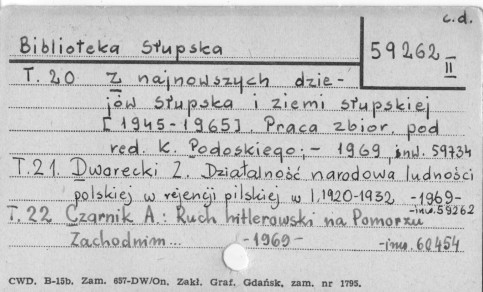 c.d.
Biblioteka Słupska
59262
II
T. 20 Z najnowszych dzie-
jów Słupska i ziemi słupskiej
[1945-1965]. Praca zbior. pod
red. K. Podoskiego; - 1969, inw. 59734
T.21. Dworecki Z. Działalność narodowa ludności
polskiej w rejencji pilskiej w l. 1920-1932 -1969-
-inw. 59262
T. 22 Czarnik A.: Ruch hitlerowski na Pomorzu
Zachodnim... -1969- -inw. 60454
CWD. B-15b, Zam. 657-DW/On. Zakł. Graf. Gdańsk, zam. nr 1795.